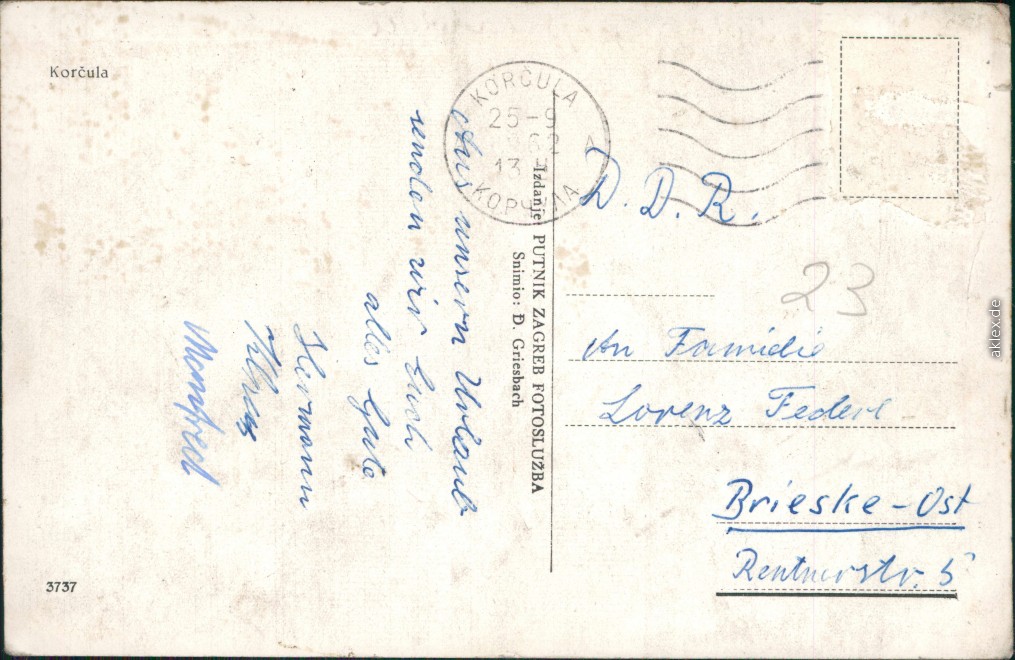 Korčula
Aus unsern Urlaub
senden wir Euch
alles Gute
Hermann
Manfred
3737
KORČULA
25-9
62
13
КОРЧУЛА
Izdanje: PUTNIK ZAGREB FOTOSLUŽBA
Snimio: Đ. Griesbach
D. D. R.
23
An Familie
Lorenz Federl
Brieske-Ost
Rentnerstr. 5
aklex.de